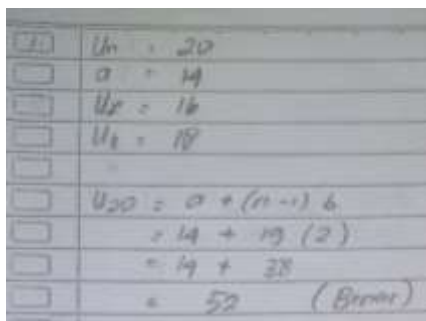 1. Un = 20
a = 14
U2 = 16
U3 = 18
U20 = a + (n-1) b
= 14 + 19 (2)
= 14 + 38
= 52 (Benar)